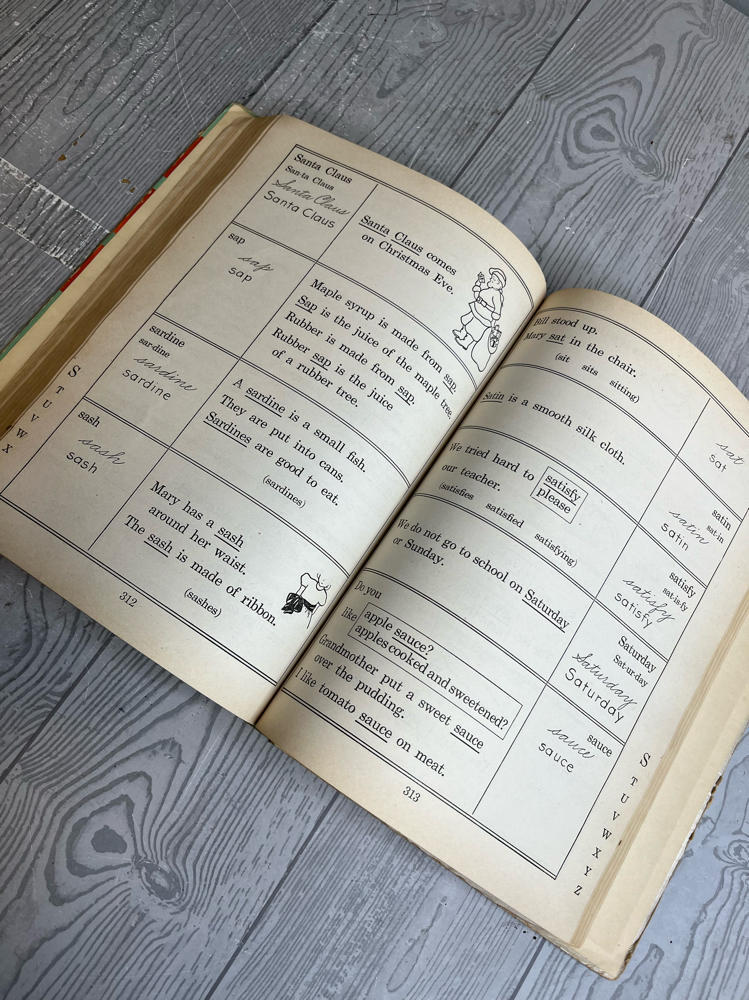 Santa Claus
San·ta Claus
Santa Claus
Santa Claus
Santa Claus comes
on Christmas Eve.
sap
sap
sap
Maple syrup is made from sap.
Sap is the juice of the maple tree.
Rubber is made from sap.
Rubber sap is the juice
of a rubber tree.
sardine
sar·dine
sardine
sardine
A sardine is a small fish.
They are put into cans.
Sardines are good to eat.
(sardines)
sash
sash
sash
Mary has a sash
around her waist.
The sash is made of ribbon.
(sashes)
S
T
U
V
W
X
312
Bill stood up.
Mary sat in the chair.
(sit sits sitting)
sat
sat
Satin is a smooth silk cloth.
satin
sat·in
satin
satin
We tried hard to satisfy
please
our teacher.
(satisfies satisfied satisfying)
satisfy
sat·is·fy
satisfy
satisfy
We do not go to school on Saturday
or Sunday.
Saturday
Sat·ur·day
Saturday
Saturday
Do you
like apple sauce?
apples cooked and sweetened?
Grandmother put a sweet sauce
over the pudding.
I like tomato sauce on meat.
sauce
sauce
sauce
S
T
U
V
W
X
Y
Z
313